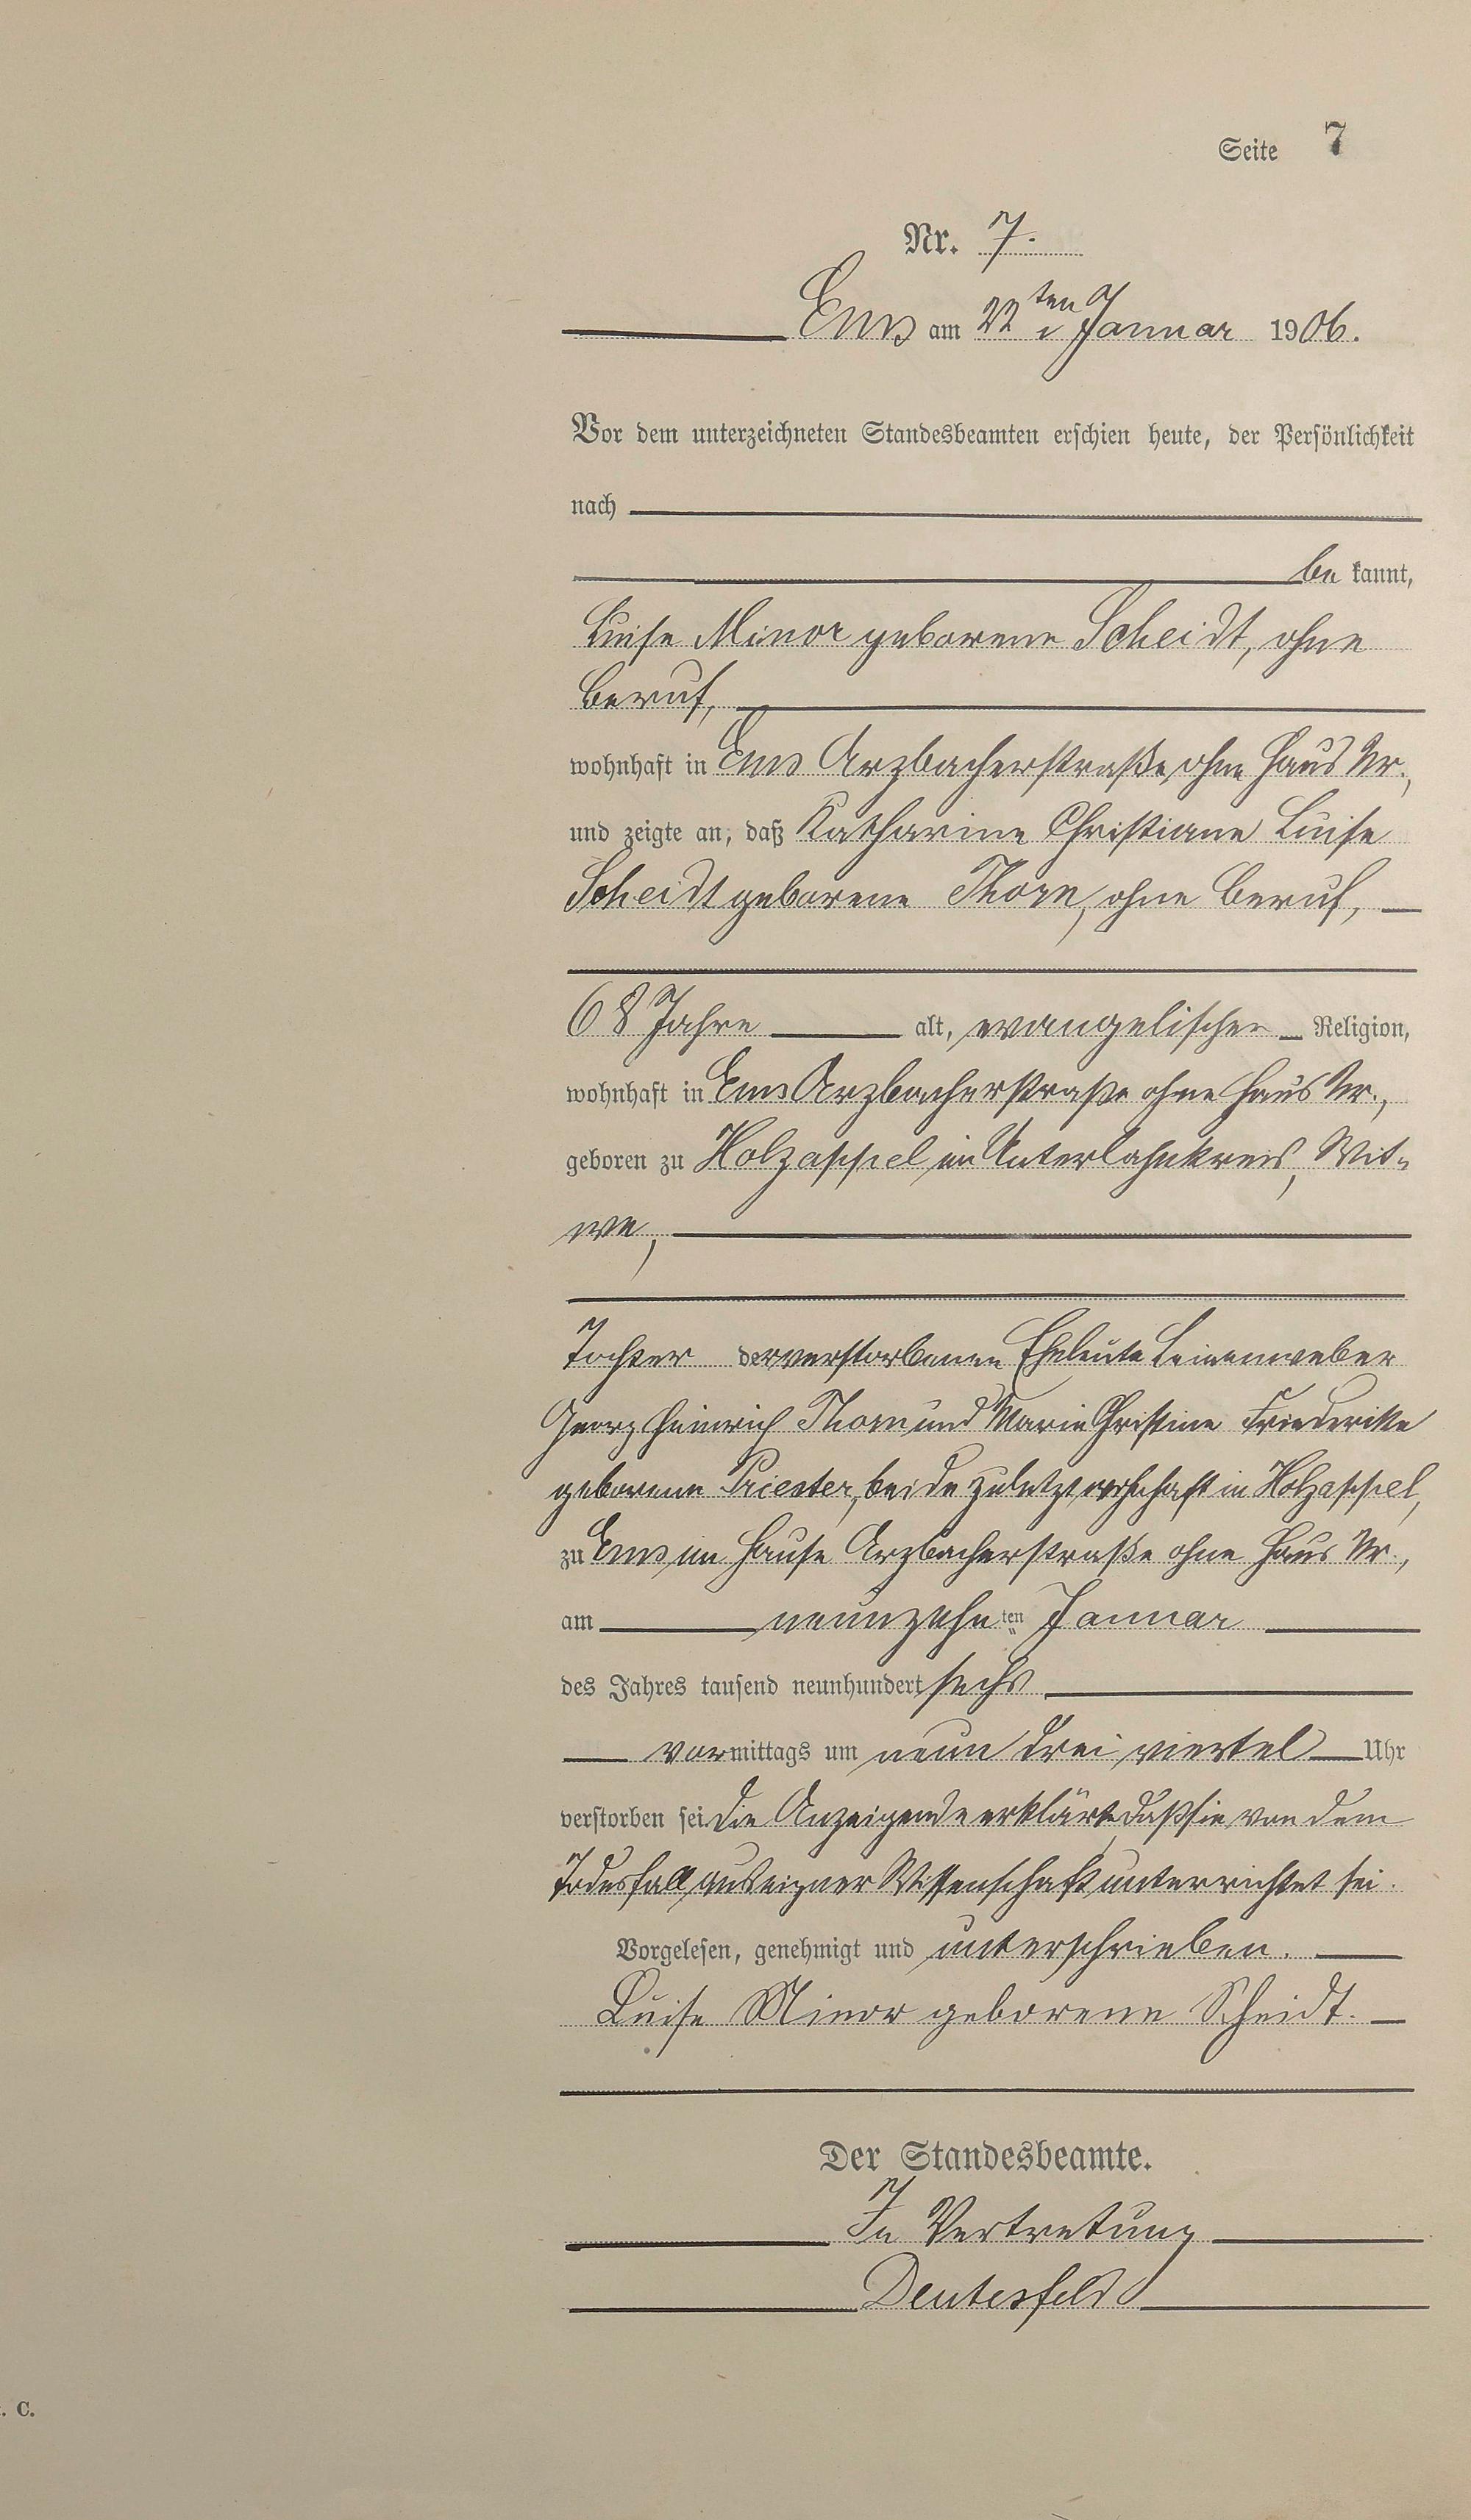 Seite 7
Nr. 7.
Ems am 22ten Januar 1906.
Vor dem unterzeichneten Standesbeamten erschien heute, der Persönlichkeit
nach
be kannt,
Luise Minor geborene Scheidt, ohne
Beruf,
wohnhaft in Ems Arzbacherstraße, ohne Haus Nr.,
und zeigte an, daß Katharine Christiane Luise
Scheidt geborene Thorn, ohne Beruf,
68 Jahre alt, evangelischer Religion,
wohnhaft in Ems Arzbacherstraße ohne Haus Nr.,
geboren zu Holzappel im Unterlahnkreis, Wit-
we,
Tochter der verstorbenen Eheleute Leinenweber
Georg Heinrich Thorn und Marie Christine Friederike
geborene Priester, beide zuletzt wohnhaft in Holzappel,
zu Ems im Hause Arzbacherstraße ohne Haus Nr.,
am neunzehnten Januar
des Jahres tausend neunhundert sechs
vormittags um neun drei viertel Uhr
verstorben sei. Die Anzeigende erklärte, daß sie von dem
Todesfall aus eigner Wissenschaft unterrichtet sei.
Vorgelesen, genehmigt und unterschrieben.
Luise Minor geborene Scheidt.
Der Standesbeamte.
In Vertretung
. C.